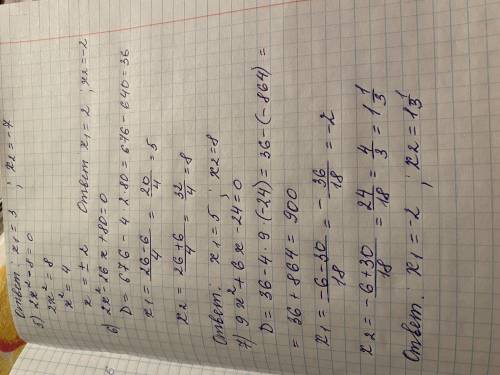 Ответ: x1 = 3 ; x2 = -7
5) 2x² - 8 = 0
2x² = 8
x² = 4
x = ± 2 Ответ x1 = 2 ; x2 = -2
6) 2x² - 26x + 80 = 0
D = 676 - 4 · 2 · 80 = 676 - 640 = 36
x1 = 26-6/4 = 20/4 = 5
x2 = 26+6/4 = 32/4 = 8
Ответ: x1 = 5 ; x2 = 8
7) 9x² + 6x - 24 = 0
D = 36 - 4 · 9 (-24) = 36 - (-864) =
= 36 + 864 = 900
x1 = -6-30/18 = - 36/18 = -2
x2 = -6+30/18 = 24/18 = 4/3 = 1 1/3
Ответ: x1 = -2 ; x2 = 1 1/3